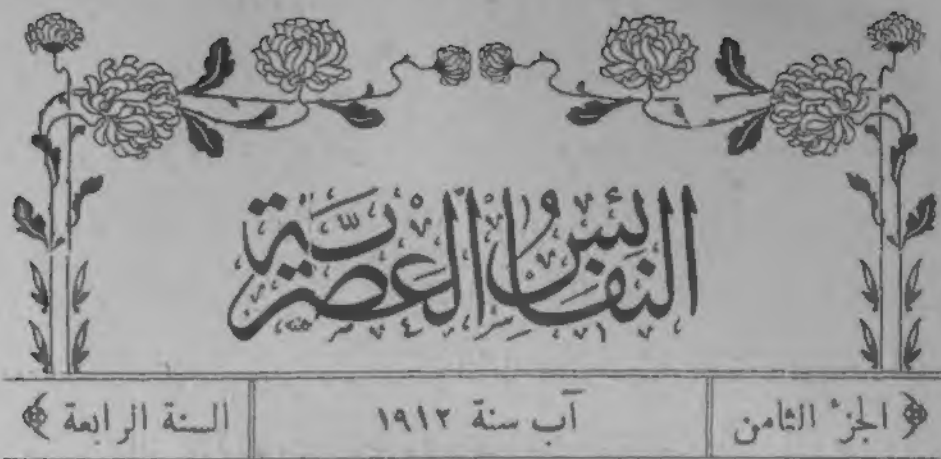 النفائس العصرية
الجزء الثامن
آب سنة ١٩١٢
السنة الرابعة